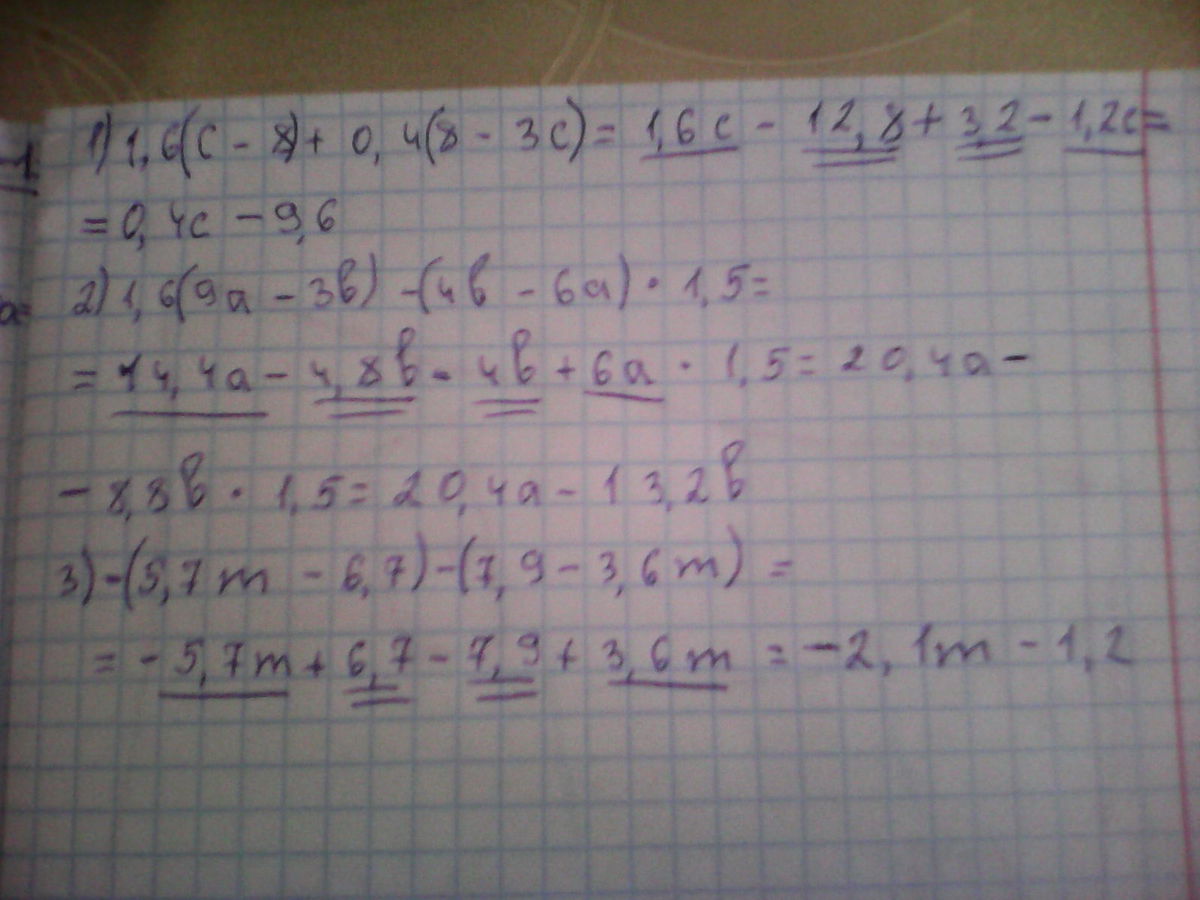 1) 1,6(c - 8) + 0,4(8 - 3c) = 1,6c - 12,8 + 3,2 - 1,2c =
= 0,4c - 9,6
2) 1,6(9a - 3в) - (4в - 6a) · 1,5 =
= 14,4a - 4,8в - 4в + 6a · 1,5 = 20,4a -
- 8,8в · 1,5 = 20,4a - 13,2в
3) -(5,7m - 6,7) - (7,9 - 3,6m) =
= - 5,7m + 6,7 - 7,9 + 3,6m = -2,1m - 1,2